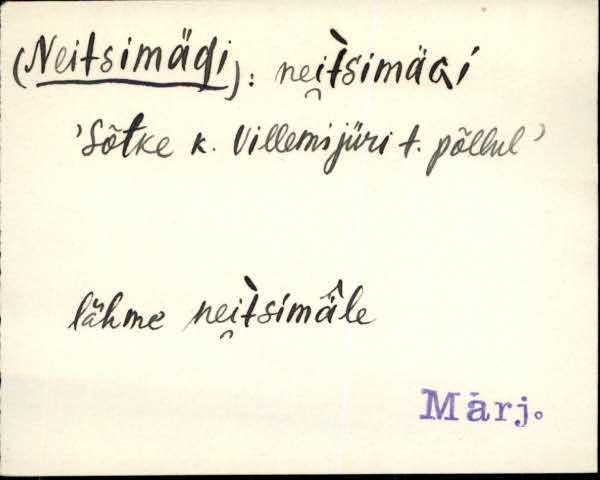 (Neitsimägi): nei̯t̀simäGi
'Sõtke k. Villemijüri t. põllul'
lä̆hme nei̯t̀simä̂le
Märj.